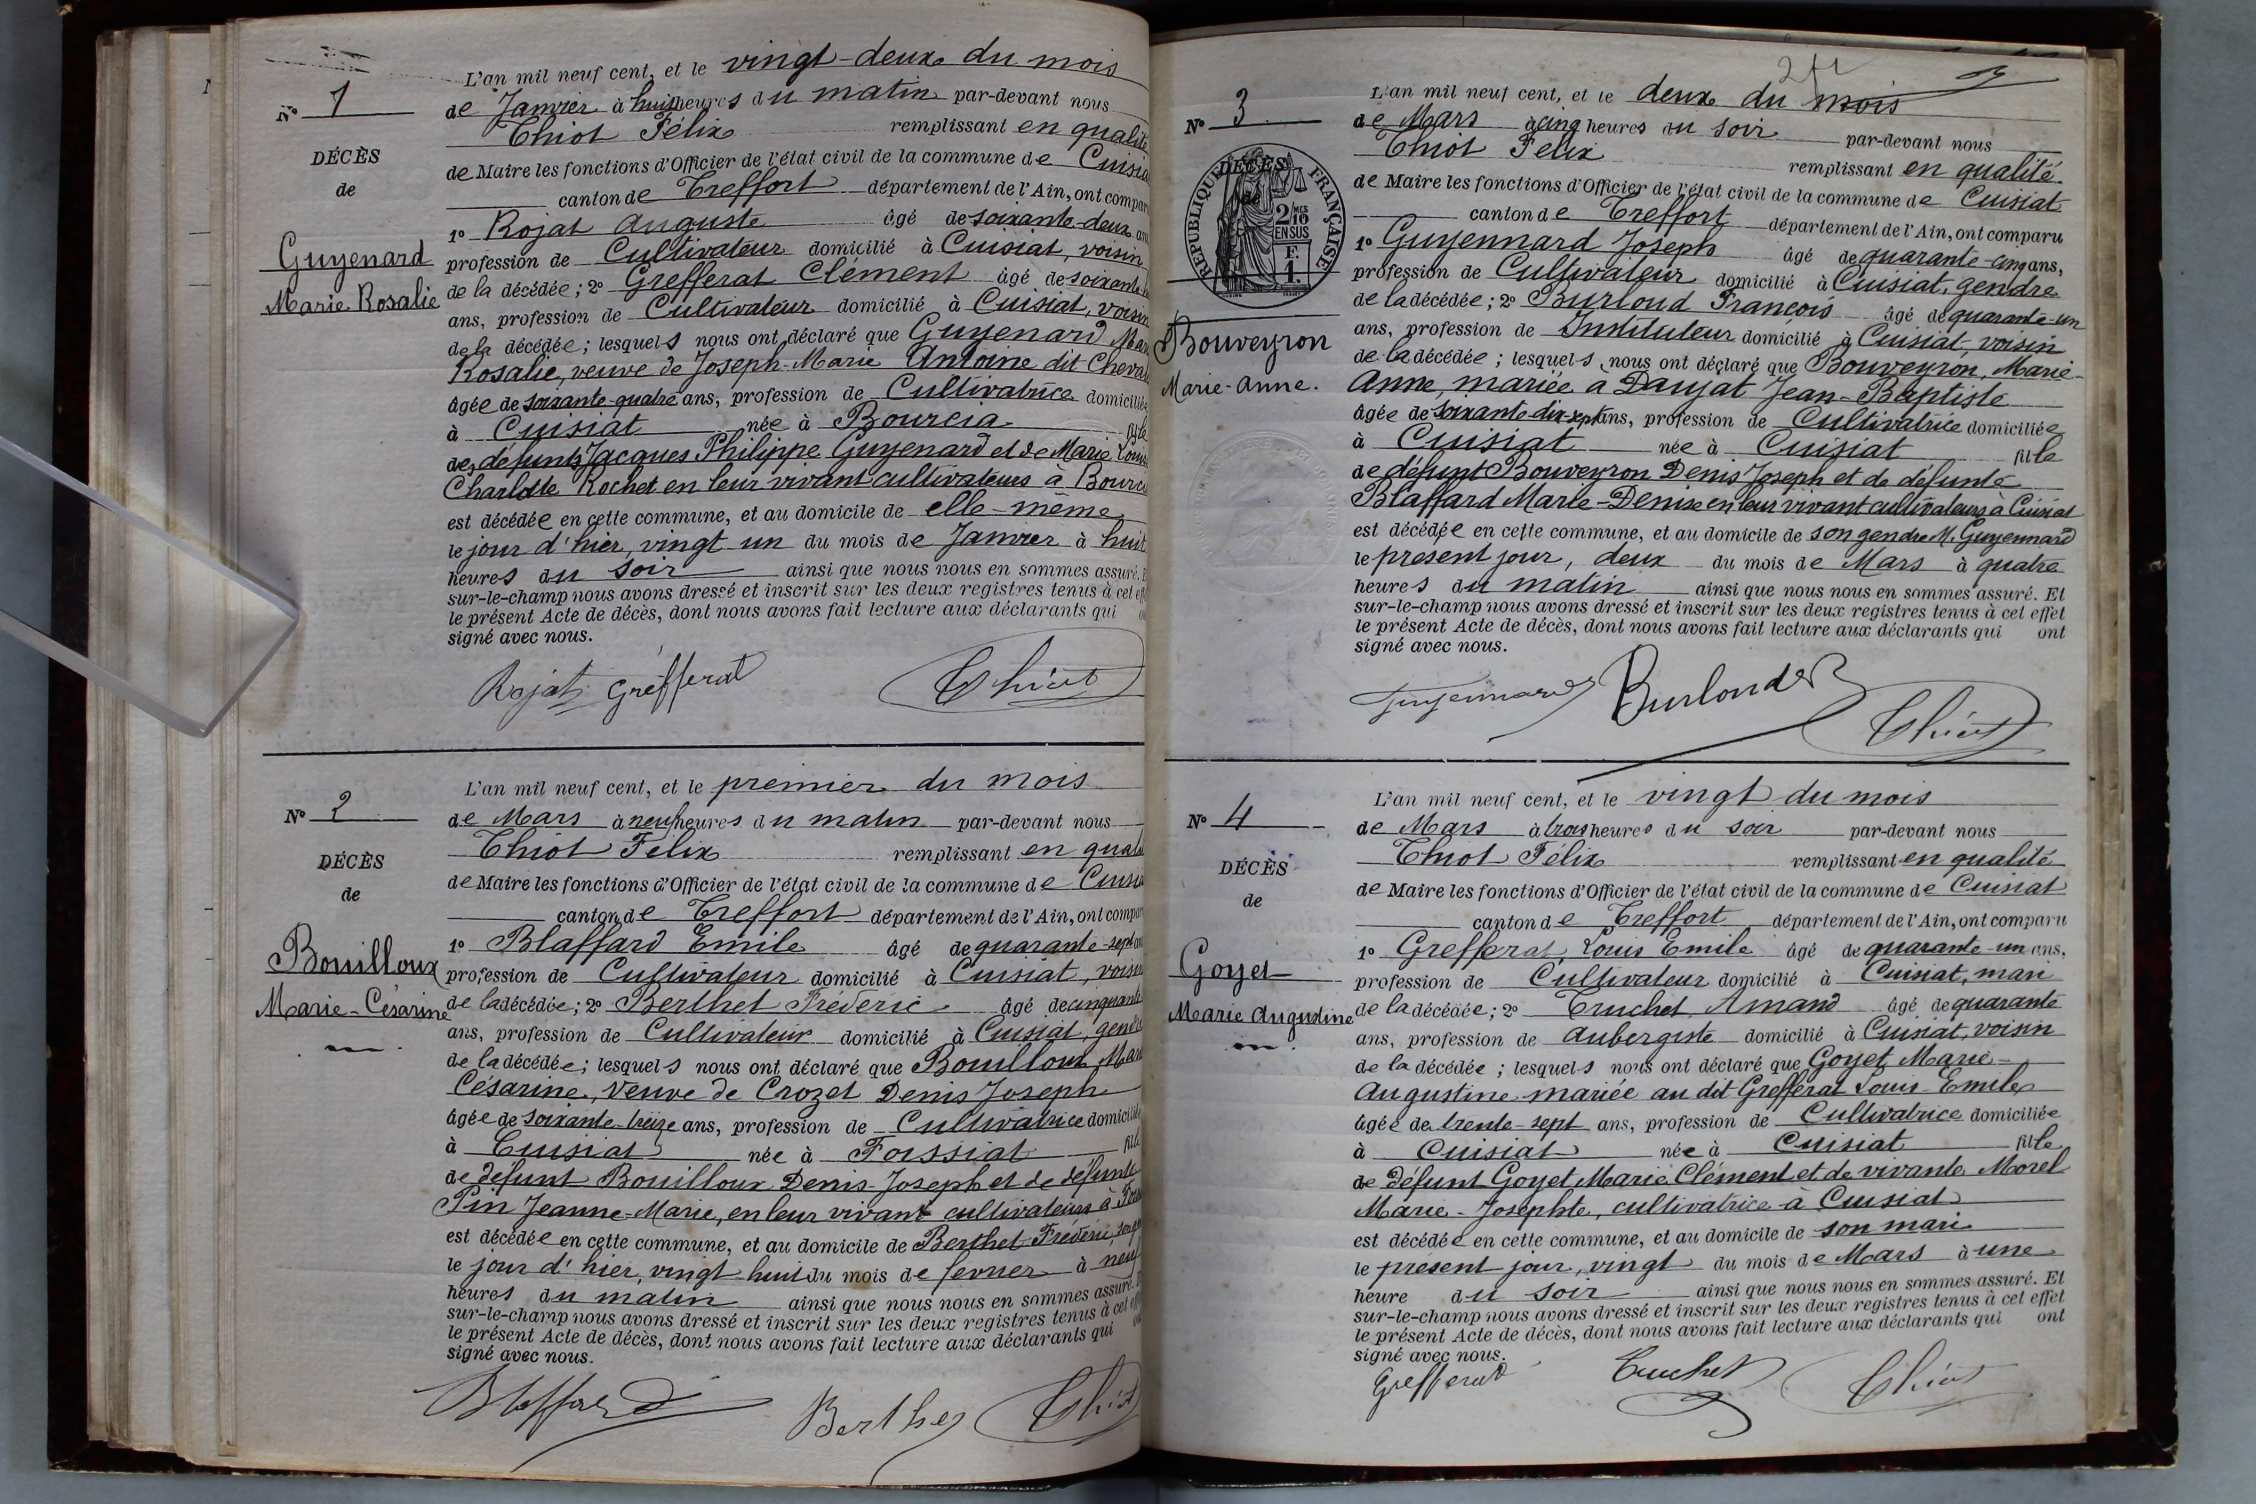 N° 1
DÉCÈS
de
Guyenard
Marie Rosalie
L'an mil neuf cent, et le vingt-deux du mois
de Janvier à huit heures du matin par-devant nous
Thiot Félix remplissant en qualité
de Maire les fonctions d'Officier de l'état civil de la commune de Cuisia
canton de Treffort département de l'Ain, ont compar
1° Rojat Auguste âgé de soixante-deux an
profession de Cultivateur domicilié à Cuisiat, voisin
de la décédée; 2° Grefferat Clément âgé de soixante
ans, profession de Cultivateur domicilié à Cuisiat, voisin
de la décédée; lesquels nous ont déclaré que Guyenard Mar
Rosalie, veuve de Joseph-Marie Antoine dit Cheval
âgée de soixante-quatre ans, profession de Cultivatrice domiciliée
à Cuisiat née à Bourcia fille
des défunts Jacques Philippe Guyenard et de Marie Louise
Charlotte Rochet en leur vivant cultivateurs à Bourcia
est décédée en cette commune, et au domicile de elle-même
le jour d'hier, vingt un du mois de Janvier à huit
heures du soir ainsi que nous nous en sommes assuré. E
sur-le-champ nous avons dressé et inscrit sur les deux registres tenus à cet eff
le présent Acte de décès, dont nous avons fait lecture aux déclarants qui o
signé avec nous.
Rojat Grefferat Thiot
N° 2
DÉCÈS
de
Bouilloux
Marie-Césarine
L'an mil neuf cent, et le premier du mois
de Mars à neuf heures du matin par-devant nous
Thiot Félix remplissant en qual
de Maire les fonctions d'Officier de l'état civil de la commune de Cuisia
canton de Treffort département de l'Ain, ont compar
1° Blaffard Emile âgé de quarante-sept an
profession de Cultivateur domicilié à Cuisiat, voisin
de la décédée; 2° Berthet Fréderic âgé de cinquante
ans, profession de Cultivateur domicilié à Cuisiat, gendre
de la décédée; lesquels nous ont déclaré que Bouilloux Mar
Césarine, Veuve de Crozet Denis Joseph
âgée de soixante-treize ans, profession de Cultivatrice domiciliée
à Cuisiat née à Foissiat fille
de défunt Bouilloux Denis-Joseph et de défunte
Pin Jeanne-Marie, en leur vivant cultivateurs à Foiss
est décédée en cette commune, et au domicile de Berthet Fréderic, son gen
le jour d'hier, vingt huit du mois de fevrier à neuf
heures du matin ainsi que nous nous en sommes assuré.
sur-le-champ nous avons dressé et inscrit sur les deux registres tenus à cet eff
le présent Acte de décès, dont nous avons fait lecture aux déclarants qui on
signé avec nous.
Blaffard Berthet Thiot
N° 3
DÉCÈS
de
RÉPUBLIQUE FRANÇAISE
2/10 MES
EN SUS
F.
1.
Bouveyron
Marie-Anne.
L'an mil neuf cent, et le deux du mois
de Mars à cinq heures du soir par-devant nous
Thiot Félix remplissant en qualité
de Maire les fonctions d'Officier de l'état civil de la commune de Cuisiat
canton de Treffort département de l'Ain, ont comparu
1° Guyennard Joseph âgé de quarante-cinq ans,
profession de Cultivateur domicilié à Cuisiat, gendre
de la décédée; 2° Burloud François âgé de quarante-un
ans, profession de Instituteur domicilié à Cuisiat, voisin
de la décédée; lesquels nous ont déclaré que Bouveyron, Marie-
Anne, mariée a Daujat Jean-Baptiste
âgée de soixante dix-sept ans, profession de Cultivatrice domiciliée
à Cuisiat née à Cuisiat fille
de défunt Bouveyron Denis Joseph et de défunte
Blaffard Marie-Denise en leur vivant cultivateurs à Cuisiat
est décédée en cette commune, et au domicile de son gendre M. Guyennard
le present jour, deux du mois de Mars à quatre
heures du matin ainsi que nous nous en sommes assuré. Et
sur-le-champ nous avons dressé et inscrit sur les deux registres tenus à cet effet
le présent Acte de décès, dont nous avons fait lecture aux déclarants qui ont
signé avec nous.
Guyennard Burloud Thiot
N° 4
DÉCÈS
de
Goyet
Marie Augustine
L'an mil neuf cent, et le vingt du mois
de Mars à trois heures du soir par-devant nous
Thiot Félix remplissant en qualité
de Maire les fonctions d'Officier de l'état civil de la commune de Cuisiat
canton de Treffort département de l'Ain, ont comparu
1° Grefferat, Louis Emile âgé de quarante-un ans,
profession de Cultivateur domicilié à Cuisiat, mari
de la décédée; 2° Truchet Amand âgé de quarante
ans, profession de Aubergiste domicilié à Cuisiat, voisin
de la décédée; lesquels nous ont déclaré que Goyet Marie-
Augustine mariée au dit Grefferat Louis-Emile
âgée de trente-sept ans, profession de Cultivatrice domiciliée
à Cuisiat née à Cuisiat fille
de défunt Goyet Marie Clément et de vivante Morel
Marie-Josephte, cultivatrice à Cuisiat
est décédée en cette commune, et au domicile de son mari
le présent jour, vingt du mois de Mars à une
heure du soir ainsi que nous nous en sommes assuré. Et
sur-le-champ nous avons dressé et inscrit sur les deux registres tenus à cet effet
le présent Acte de décès, dont nous avons fait lecture aux déclarants qui ont
signé avec nous.
Grefferat Truchet Thiot